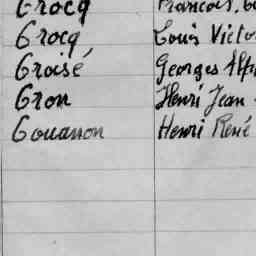 Crocq François,
Crocq Louis Victo
Croisé Georges Alph
Cron Henri Jean
Couanon Henri René